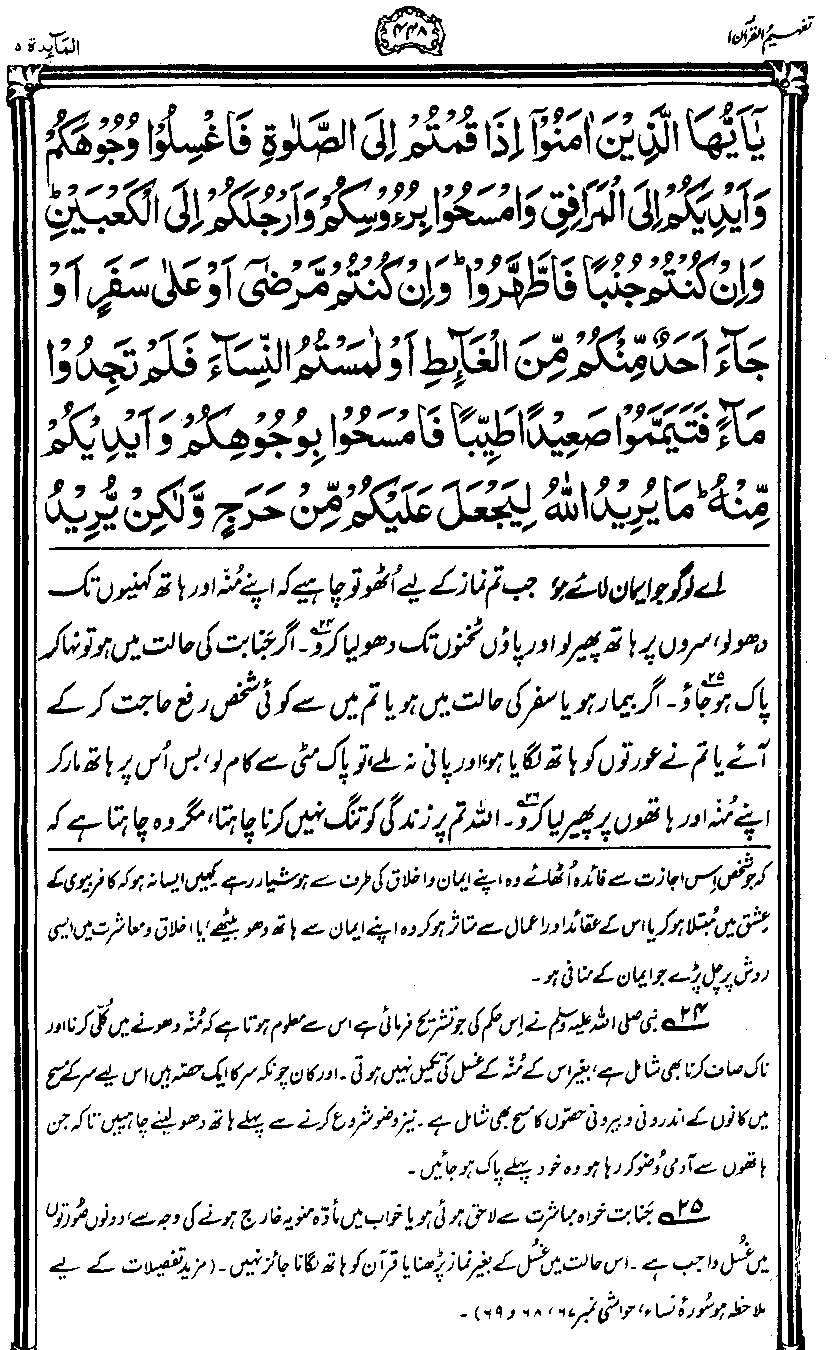 تفہیم القرآن ۱
۴۴۸
المآیدۃ ۵
یٰۤاَیُّهَا الَّذِیْنَ اٰمَنُوْۤا اِذَا قُمْتُمْ اِلَی الصَّلٰوةِ فَاغْسِلُوْا وُجُوْهَكُمْ
وَاَیْدِیَكُمْ اِلَی الْمَرَافِقِ وَامْسَحُوْا بِرُءُوْسِكُمْ وَاَرْجُلَكُمْ اِلَی الْكَعْبَیْنِ ؕ
وَاِنْ كُنْتُمْ جُنُبًا فَاطَّهَّرُوْا ؕ وَاِنْ كُنْتُمْ مَّرْضٰۤی اَوْ عَلٰی سَفَرٍ اَوْ
جَآءَ اَحَدٌ مِّنْكُمْ مِّنَ الْغَآىِٕطِ اَوْ لٰمَسْتُمُ النِّسَآءَ فَلَمْ تَجِدُوْا
مَآءً فَتَیَمَّمُوْا صَعِیْدًا طَیِّبًا فَامْسَحُوْا بِوُجُوْهِكُمْ وَاَیْدِیْكُمْ
مِّنْهُ ؕ مَا یُرِیْدُ اللّٰهُ لِیَجْعَلَ عَلَیْكُمْ مِّنْ حَرَجٍ وَّلٰكِنْ یُّرِیْدُ
اے لوگو جو ایمان لائے ہو، جب تم نماز کے لیے اُٹھو تو چاہیے کہ اپنے مُنہ اور ہاتھ کہنیوں تک
دھولو، سروں پر ہاتھ پھیر لو اور پاؤں ٹخنوں تک دھو لیا کرو۲۴۔ اگر جَنابت کی حالت میں ہو تو نہا کر
پاک ہو جاؤ۲۵۔ اگر بیمار ہو یا سفر کی حالت میں ہو یا تم میں سے کوئی شخص رفع حاجت کر کے
آئے یا تم نے عورتوں کو ہاتھ لگایا ہو، اور پانی نہ ملے، تو پاک مٹی سے کام لو، بس اُس پر ہاتھ مار کر
اپنے مُنہ اور ہاتھوں پر پھیر لیا کرو۲۶۔ اللہ تم پر زندگی کو تنگ نہیں کرنا چاہتا، مگر وہ چاہتا ہے کہ
کہ جو شخص اِس اجازت سے فائدہ اُٹھائے وہ اپنے ایمان و اخلاق کی طرف سے ہوشیار رہے کہیں ایسا نہ ہو کہ کافر بیوی کے
عشق میں مُبتلا ہو کر یا اس کے عقائد اور اعمال سے متاثر ہو کر وہ اپنے ایمان سے ہاتھ دھو بیٹھے، یا اخلاق و معاشرت میں ایسی
روش پر چل پڑے جو ایمان کے منافی ہو۔
۲۴ نبی صلی اللہ علیہ وسلم نے اِس حکم کی جو تشریح فرمائی ہے اس سے معلوم ہوتا ہے کہ مُنہ دھونے میں کُلّی کرنا اور
ناک صاف کرنا بھی شامل ہے، بغیر اس کے مُنہ کے غسل کی تکمیل نہیں ہوتی۔ اور کان چونکہ سر کا ایک حصّہ ہیں اس لیے سر کے مسح
میں کانوں کے اندرونی و بیرونی حصّوں کا مسح بھی شامل ہے۔ نیز وضو شروع کرنے سے پہلے ہاتھ دھو لینے چاہییں تاکہ جن
ہاتھوں سے آدمی وُضو کر رہا ہو وہ خود پہلے پاک ہو جائیں۔
۲۵ جَنابت خواہ مباشرت سے لاحق ہوئی ہو یا خواب میں مادّہ منویہ خارج ہونے کی وجہ سے، دونوں صُورتوں
میں غُسل واجب ہے۔ اس حالت میں غُسل کے بغیر نماز پڑھنا یا قرآن کو ہاتھ لگانا جائز نہیں۔ (مزید تفصیلات کے لیے
ملاحظہ ہو سُورۂ نساء، حواشی نمبر ۶۷، ۶۸ و ۶۹)۔